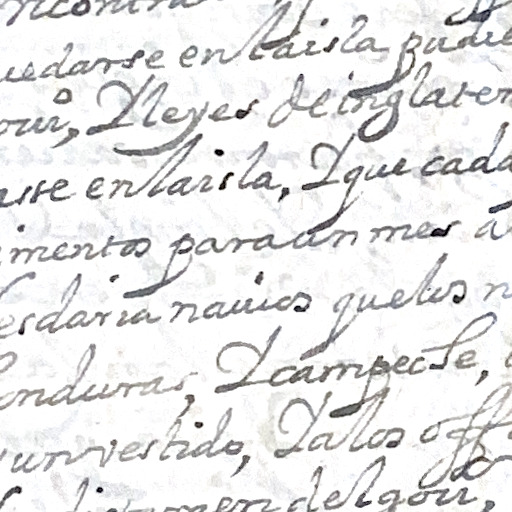 uedarse en laisla pudie
our^o, Yleyes de inglater
arse en laisla, Yque cada
imentos paraun mes a
lesdaria nauios quelos
onduras, Ycampeche,
unvestido, Yalos off
del gou^r,